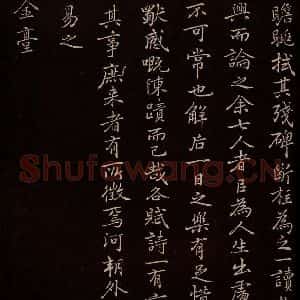 瞻眺拭其殘碑斷柱為之一讀
與而論之余七人者官為人生出處
不可常也解后一日之樂有足惜
歔慼嘅陳蹟而已哉各賦詩一有
其事庶来者有所徵焉河朝外
易之
金臺
Shufawang.CN